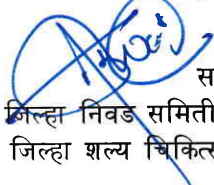 स
जिल्हा निवड समिती
जिल्हा शल्य चिकित्स